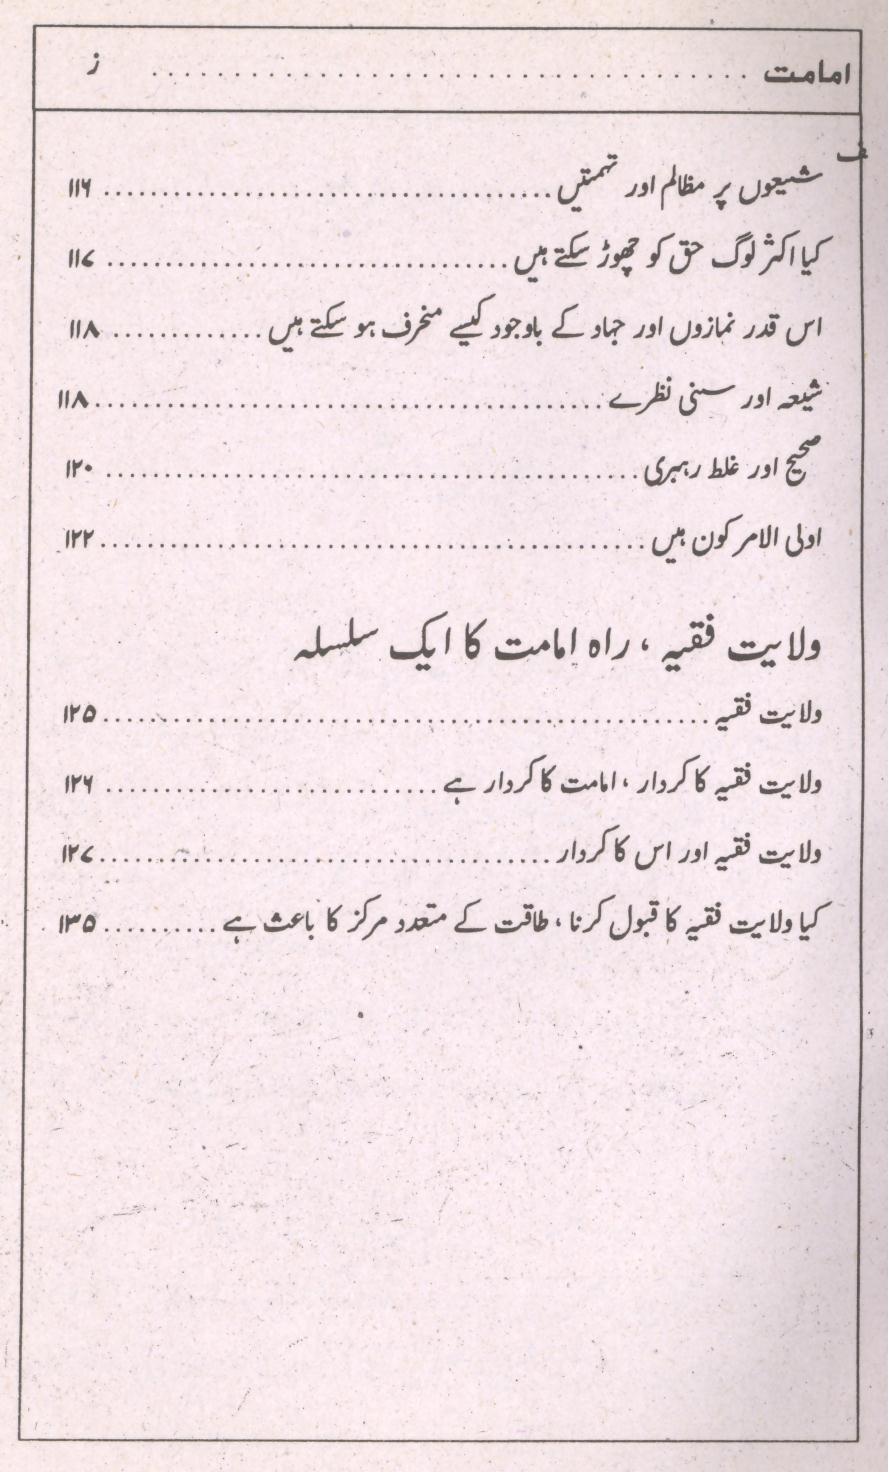 امامت ........................................ ز
ف
شیعوں پر مظالم اور تہمتیں ........................................ ۱۱۶
کیا اکثر لوگ حق کو چھوڑ سکتے ہیں ........................................ ۱۱۷
اس قدر نمازوں اور جہاد کے باوجود کیسے منحرف ہو سکتے ہیں ............. ۱۱۸
شیعہ اور سنی نظرے ........................................ ۱۱۸
صحیح اور غلط رہبری ........................................ ۱۲۰
اولی الامر کون ہیں ........................................ ۱۲۲
ولایت فقیہ ، راہ امامت کا ایک سلسلہ
ولایت فقیہ ........................................ ۱۲۵
ولایت فقیہ کا کردار ، امامت کا کردار ہے ............................ ۱۲۶
ولایت فقیہ اور اس کا کردار ........................................ ۱۲۷
کیا ولایت فقیہ کا قبول کرنا ، طاقت کے متعدد مرکز کا باعث ہے .......... ۱۳۵